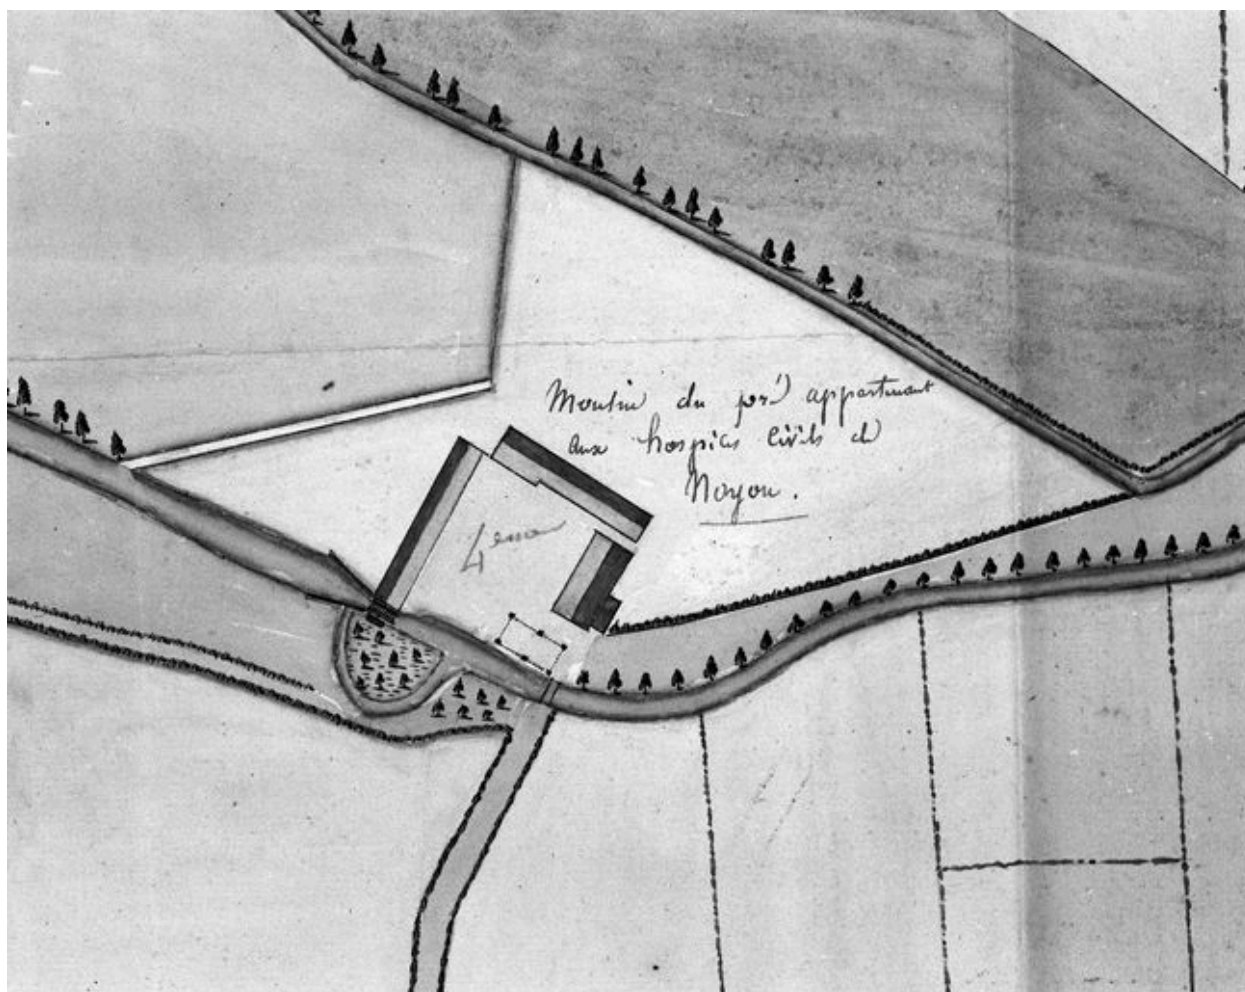 Moulin du pré appartenant
aux hospices civils de
Noyon.
4eme